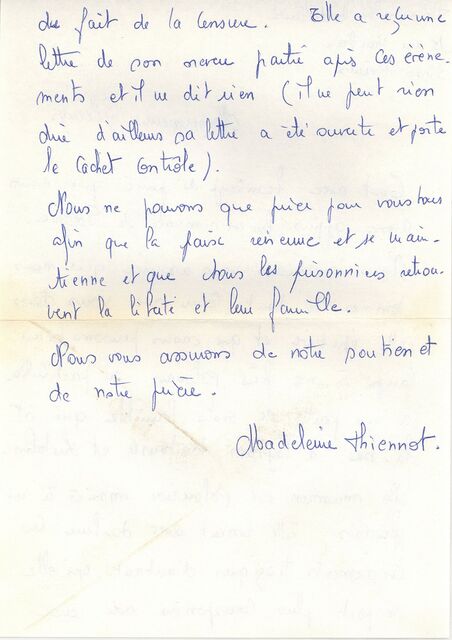 du fait de la Censure. Elle a reçu une
lettre de son neveu partie après ces évène-
ments et il ne dit rien (il ne peut rien
dire d'ailleurs sa lettre a été ouverte et porte
le Cachet Contrôle).
Nous ne pouvons que prier pour vous tous
afin que la paix revienne et se main-
tienne et que tous les prisonniers retrou-
vent la liberté et leur famille.
Nous vous assurons de notre soutien et
de notre prière.
Madeleine Thiennot.